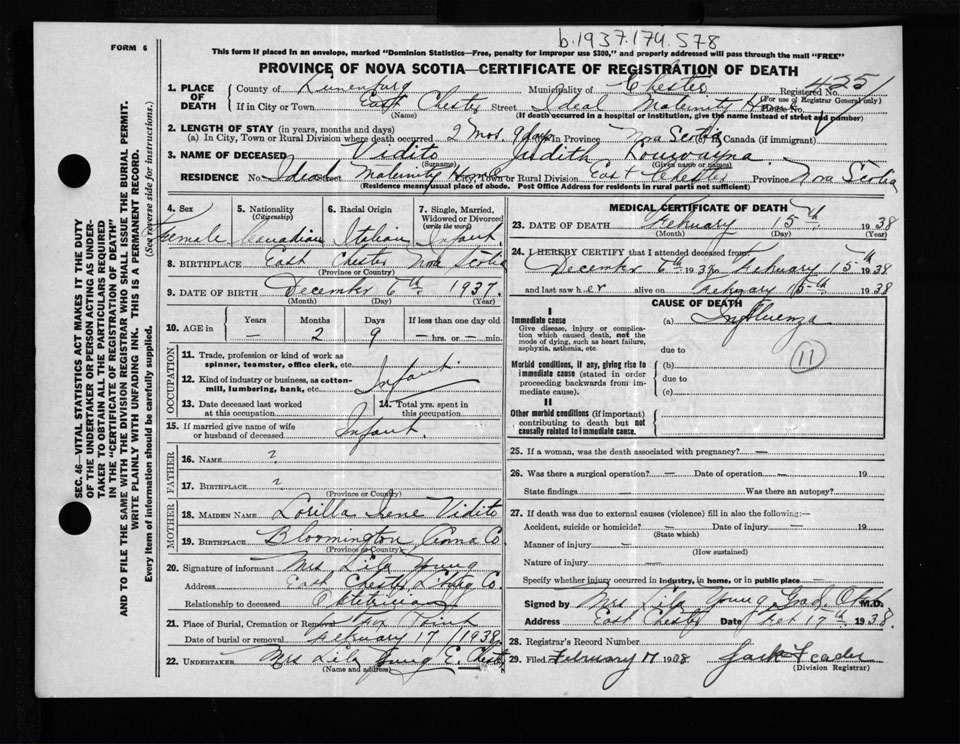 b.1937.174.578
FORM 6
This form if placed in an envelope, marked "Dominion Statistics—Free, penalty for improper use $300," and properly addressed will pass through the mail "FREE"
PROVINCE OF NOVA SCOTIA—CERTIFICATE OF REGISTRATION OF DEATH
1. PLACE OF DEATH
County of Lunenburg Municipality of Chester Registered No. 425
(For use of Registrar General only)
If in City or Town East Chester Street Ideal Maternity Home No.
(Name) (If death occurred in a hospital or institution, give the name instead of street and number)
2. LENGTH OF STAY (in years, months and days)
(a) In City, Town or Rural Division where death occurred 2 mos. 9 days in Province Nova Scotia in Canada (if immigrant)
3. NAME OF DECEASED Vidito Judith
(Surname) (Given name or names)
RESIDENCE No. Ideal Maternity Home City, Town or Rural Division East Chester Province Nova Scotia
(Residence means usual place of abode. Post Office Address for residents in rural parts not sufficient)
4. Sex
Female
5. Nationality
(Citizenship)
Canadian
6. Racial Origin
Italian
7. Single, Married, Widowed or Divorced
(write the word)
Infant.
8. BIRTHPLACE East Chester Nova Scotia
(Province or Country)
9. DATE OF BIRTH December 6th 1937.
(Month) (Day) (Year)
10. AGE in
Years Months Days If less than one day old
— 2 9 — hrs. or — min.
OCCUPATION
11. Trade, profession or kind of work as spinner, teamster, office clerk, etc.
12. Kind of industry or business, as cotton-mill, lumbering, bank, etc. Infant
13. Date deceased last worked at this occupation
14. Total yrs. spent in this occupation
15. If married give name of wife or husband of deceased Infant.
FATHER
16. NAME ?
17. BIRTHPLACE ?
(Province or Country)
MOTHER
18. MAIDEN NAME Lorilla Irene Vidito
19. BIRTHPLACE Bloomington Anna Co.
(Province or Country)
20. Signature of informant Mrs Lila Young
Address East Chester Lunbg Co.
Relationship to deceased Obstetrician
21. Place of Burial, Cremation or Removal Fox Point
Date of burial or removal February 17 1938
22. UNDERTAKER Mrs Lila Young E. Chester
(Name and address)
MEDICAL CERTIFICATE OF DEATH
23. DATE OF DEATH February 15th 1938
(Month) (Day) (Year)
24. I HEREBY CERTIFY that I attended deceased from:
December 6th 1937 to February 15th 1938
and last saw her alive on February 15th 1938
CAUSE OF DEATH
I
Immediate cause
Give disease, injury or complication which caused death, not the mode of dying, such as heart failure, asphyxia, asthenia, etc.
(a) Influenza
due to
11
Morbid conditions, if any, giving rise to immediate cause (stated in order proceeding backwards from immediate cause).
(b)
due to
(c)
II
Other morbid conditions (if important) contributing to death but not causally related to immediate cause.
25. If a woman, was the death associated with pregnancy? —
26. Was there a surgical operation? — Date of operation — 19
State findings — Was there an autopsy?
27. If death was due to external causes (violence) fill in also the following:—
Accident, suicide or homicide? — Date of injury — 19
(State which)
Manner of injury —
(How sustained)
Nature of injury —
Specify whether injury occurred in industry, in home, or in public place —
Signed by Mrs Lila Young Grad. M.D.
Address East Chester Date Feb 17th 1938.
28. Registrar's Record Number
29. Filed February 17 1938
(Division Registrar)
SEC. 46—VITAL STATISTICS ACT MAKES IT THE DUTY
OF THE UNDERTAKER OR PERSON ACTING AS UNDERTAKER TO OBTAIN ALL THE PARTICULARS REQUIRED
IN THE "CERTIFICATE OF REGISTRATION OF DEATH"
AND TO FILE THE SAME WITH THE DIVISION REGISTRAR WHO SHALL ISSUE THE BURIAL PERMIT.
WRITE PLAINLY WITH UNFADING INK. THIS IS A PERMANENT RECORD.
Every item of information should be carefully supplied. (See reverse side for instructions.)